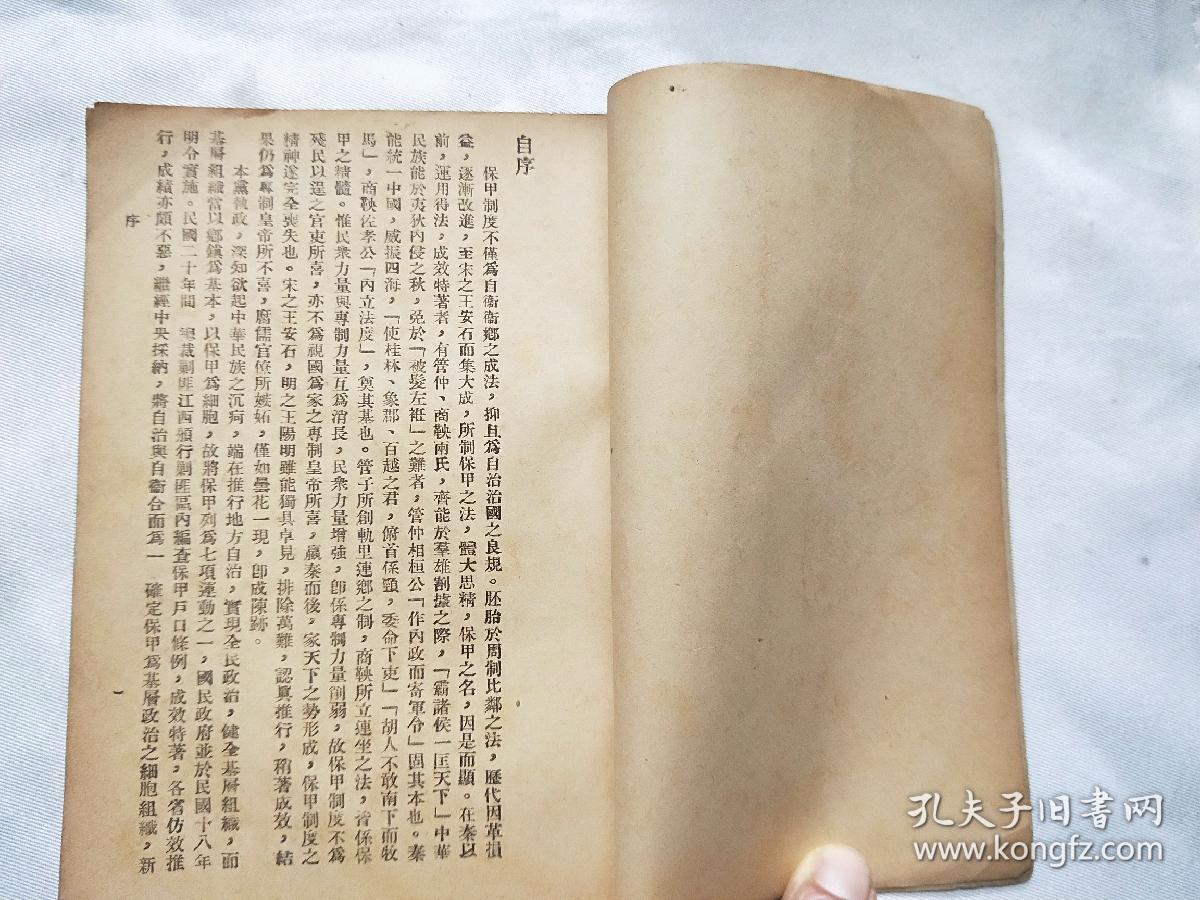 自序
保甲制度不僅爲自衞衞鄉之成法，抑且爲自治治國之良規。胚胎於周制比鄰之法，歷代因革損
益，逐漸改進，至宋之王安石而集大成，所制保甲之法，體大思精，保甲之名，因是而顯。在秦以
前，運用得法，成效特著者，有管仲、商鞅兩氏，齊能於羣雄割據之際，「霸諸侯一匡天下」中華
民族能於夷狄內侵之秋，免於「被髮左衽」之難者，管仲相桓公「作內政而寄軍令」固其本也。秦
能統一中國，威振四海，「使桂林、象郡、百越之君，俯首係頸，委命下吏」「胡人不敢南下而牧
馬」，商鞅佐孝公「內立法度」，奠其基也。管子所創軌里連鄉之制，商鞅所立連坐之法，皆係保
甲之精髓。惟民衆力量與專制力量互爲消長，民衆力量增強，卽係專制力量削弱，故保甲制度不爲
殘民以逞之官吏所喜，亦不爲視國爲家之專制皇帝所喜，嬴秦而後，家天下之勢形成，保甲制度之
精神遂完全喪失也。宋之王安石，明之王陽明雖能獨具卓見，排除萬難，認眞推行，稍著成效，結
果仍爲專制皇帝所不喜，腐儒官僚所嫉妬，僅如曇花一現，卽成陳跡。
本黨執政，深知欲起中華民族之沉疴，端在推行地方自治，實現全民政治，健全基層組織，而
基層組織當以鄉鎮爲基本，以保甲爲細胞，故將保甲列爲七項運動之一，國民政府並於民國十八年
明令實施。民國二十年間　總裁剿匪江西頒行剿匪區內編查保甲戶口條例，成效特著，各省仿效推
行，成績亦頗不惡，繼經中央採納，將自治與自衞合而爲一　確定保甲爲基層政治之細胞組織，新
序
一
孔夫子旧书网
www.kongfz.com